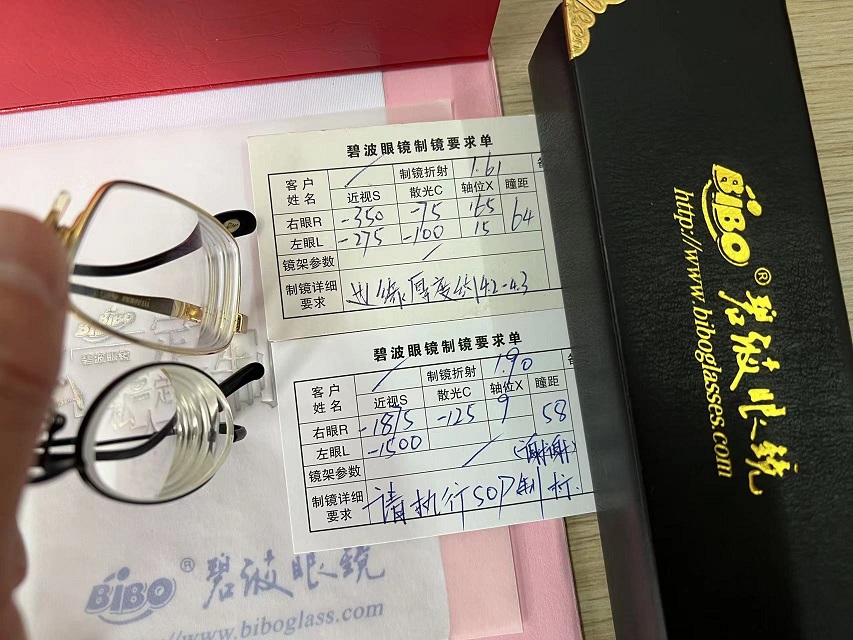 碧波眼镜制镜要求单
客户姓名 制镜折射 1.61
近视S 散光C 轴位X 瞳距
右眼R -350 -75 165 64
左眼L -275 -100 15
镜架参数
制镜详细要求 边缘厚度约4.2-4.3
碧波眼镜制镜要求单
客户姓名 制镜折射 1.90
近视S 散光C 轴位X 瞳距
右眼R -1875 -125 9 58
左眼L -1500 (谢谢)
镜架参数
制镜详细要求 请执行SOP制打.
BiBO
碧波眼镜
BiBO® 碧波眼镜
://www.biboglass.com
BiBO® 碧波眼镜
http://www.biboglasses.com